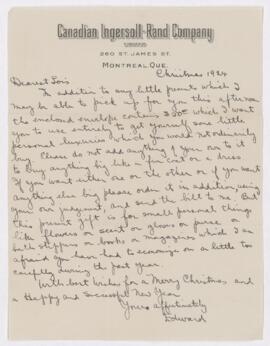 Canadian Ingersoll-Rand Company
LIMITED
260 ST. JAMES ST.
MONTREAL, QUE.
Christmas 1924
Dearest Lois
In addition to any little presents which I
may be able to pick up for you this afternoon
the enclosed envelope contains $50.00 which I want
you to use entirely to get yourself some little
personal luxuries which you would not ordinarily
buy. Please do not add anything of your own to it
to buy anything big like a fur coat or a dress
If you want either one or the other or if you want
anything else big please order it in addition, using
your own judgment, and send the bill to me. But
this present gift is for small personal things
like flowers or scent or gloves or purse or
bath slippers or books or magazines which I am
afraid you have had to economize on a little too
carefully during the past year.
With best wishes for a Merry Christmas and
a Happy and Successful New Year
Yours affectionately
Edward